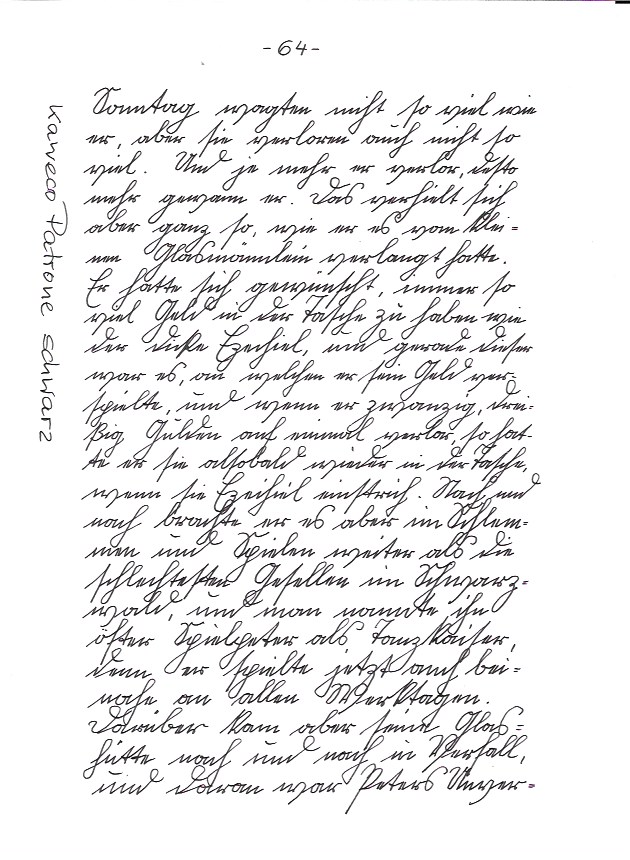 -64-
Sonntag wagten nicht so viel wie
er, aber sie verloren auch nicht so
viel. Und je mehr er verlor, desto
mehr gewann er. Das verhielt sich
aber ganz so, wie er es vom klei=
nen Glasmännlein verlangt hatte.
Er hatte sich gewünscht, immer so
viel Geld in der Tasche zu haben wie
der dicke Ezechiel, und gerade dieser
war es, an welchen er sein Geld ver-
spielte, und wenn er zwanzig, drei=
ßig Gulden auf einmal verlor, so hat-
te er sie alsobald wieder in der Tasche,
wenn sie Ezechiel einstrich. Nach und
nach brachte er es aber im Schlem=
men und Spielen weiter als die
schlechtesten Gesellen im Schwarz=
wald, und man nannte ihn
öfter Spielpeter als Tanzkaiser,
denn er spielte jetzt auch bei=
nahe an allen Werktagen.
Darüber kam aber seine Glas=
hütte nach und nach in Verfall,
und daran war Peters Unver=
Kaweco Patrone schwarz